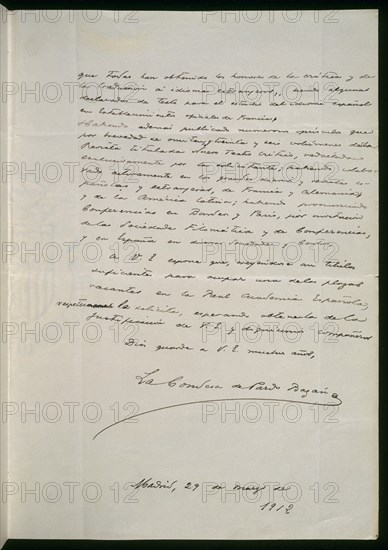 que todas han obtenido los honores de la crítica y de
la traducción al idioma extranjero, siendo algunas
declaradas de texto para el estudio del idioma español
en establecimientos oficiales de Francia;
Habiendo además publicado numerosos que
por brevedad se omiten, treinta y seis volúmenes de la
Revista titulada Nuevo Teatro Crítico, redactada
exclusivamente por la solicitante; habiendo colabo-
rado activamente en los
y extranjeras, de Francia y Alemania,
y de la América latina; habiendo pronunciado
Conferencias en y París, por invitación
de las Sociedades Filomática y de Conferencias,
y en España en diversas Sociedades y Centros,
A V. E. expone que, creyéndose con títulos
suficientes para ocupar una de las plazas
vacantes en la Real Academia Española,
respetuosamente la solicita, esperando obtenerla de la
justificación de V. E. y dignísimos compañeros
Dios guarde a V. E. muchos años,
La Condesa de Pardo Bazán
Madrid, 29 de marzo de
1912
PHOTO 12